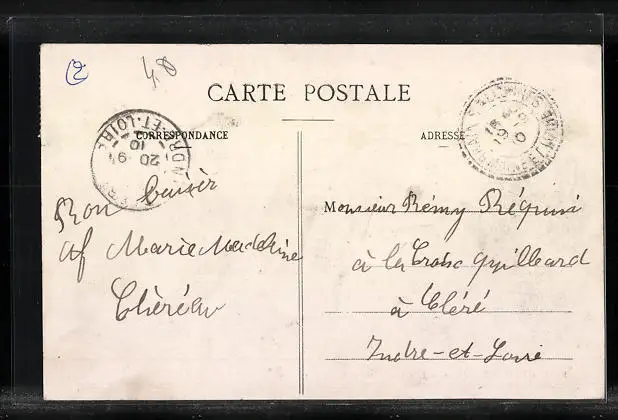 2
48
CARTE POSTALE
CORRESPONDANCE
ADRESSE
R-ET-LOIRE
20
10
Bon baisér
af Marie Madelaine
Théréau
Monsieur Rémy Réquin
à la Croix Guilleard
à Cléré
Indre-et-Loire